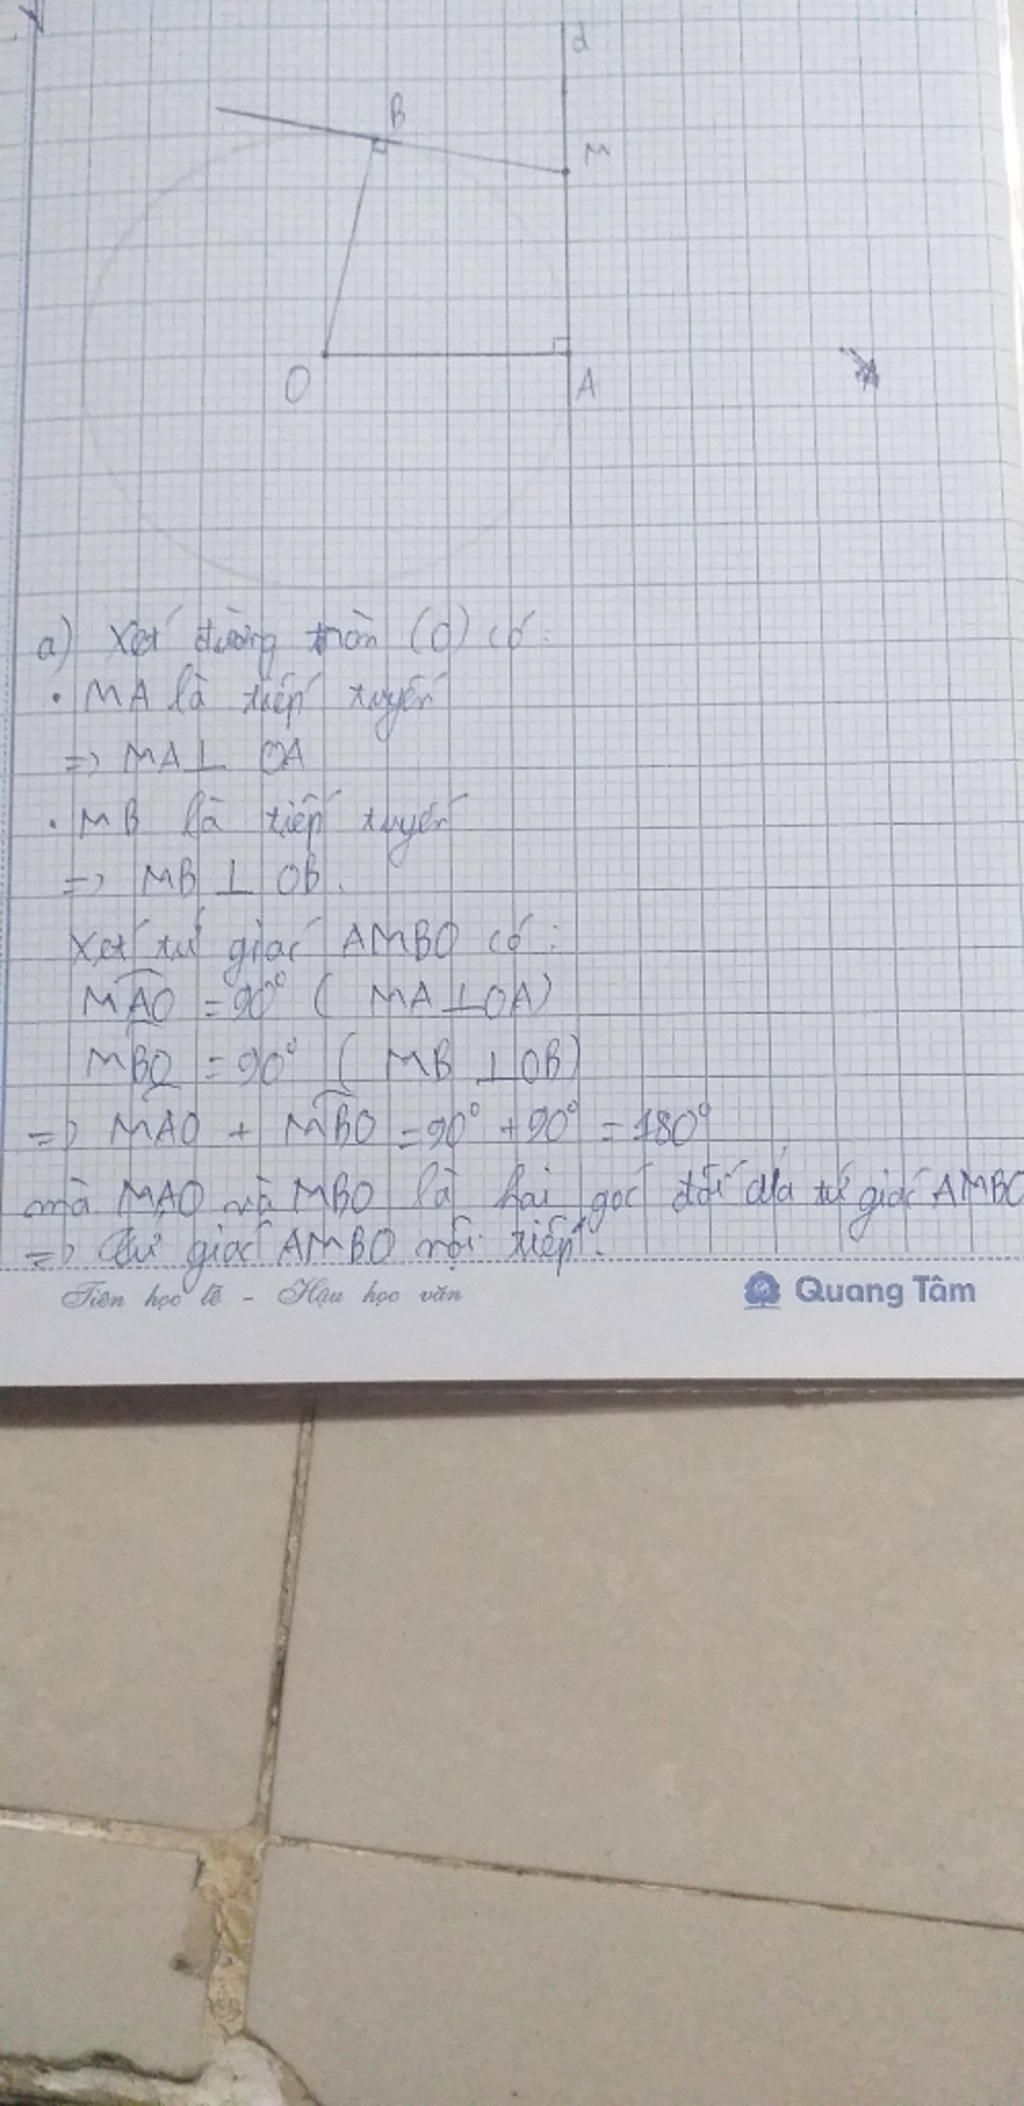 d
B
M
O
A
a) Xét đường tròn (O) có:
• MA là tiếp tuyến
=> MA ⊥ OA
• MB là tiếp tuyến
=> MB ⊥ OB.
Xét tứ giác AMBO có:
MAO = 90° ( MA ⊥ OA)
MBO = 90° ( MB ⊥ OB)
=> MAO + MBO = 90° + 90° = 180°
mà MAO và MBO là hai góc đối của tứ giác AMBO
=> Tứ giác AMBO nội tiếp.
Tiên học lễ - Hậu học văn
Quang Tâm